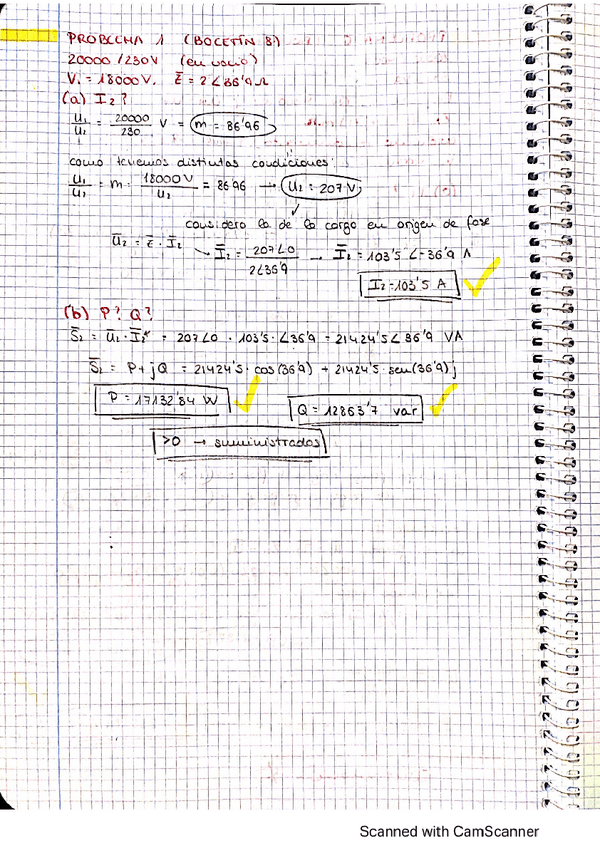 PROBLEMA 1 (BOLETÍN 8)
20000/230V (en vacío)
V₁ = 18000V. Z̄ = 2∠36'9 Ω
(a) I₂?
U₁/U₂ = 20000/230 V = m = 86'96
como tenemos distintas condiciones:
U₁/U₂ = m = 18000V/U₂ = 86'96 → U₂ = 207 V
considero la de la carga en origen de fase
Ū₂ = Z̄ · Ī₂ → Ī₂ = 207∠0/2∠36'9 → Ī₂ = 103'5 ∠-36'9 A
I₂ = 103'5 A
(b) P? Q?
S̄₂ = Ū₂ · Ī₂* = 207∠0 · 103'5 · ∠36'9 = 21424'5∠36'9 VA
S̄₂ = P + jQ = 21424'5 · cos(36'9) + 21424'5 · sen(36'9)j
P = 17132'84 W
Q = 12863'7 var
>0 → suministrados
Scanned with CamScanner